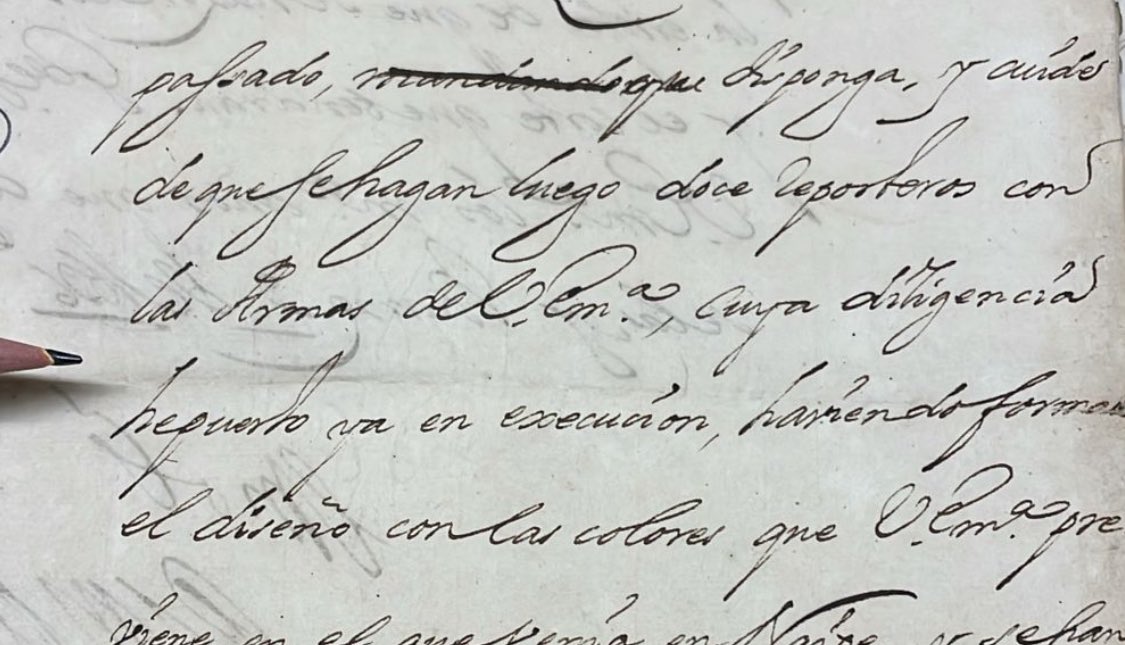 passado, mandando que disponga, y cuide
de que se hagan luego doce reposteros con
las Armas de V. Em.ª, cuya diligencia
he puesto ya en execucion, haviendo forma
el diseño con las colores que V. Em.ª pre
viene en el que en y se han